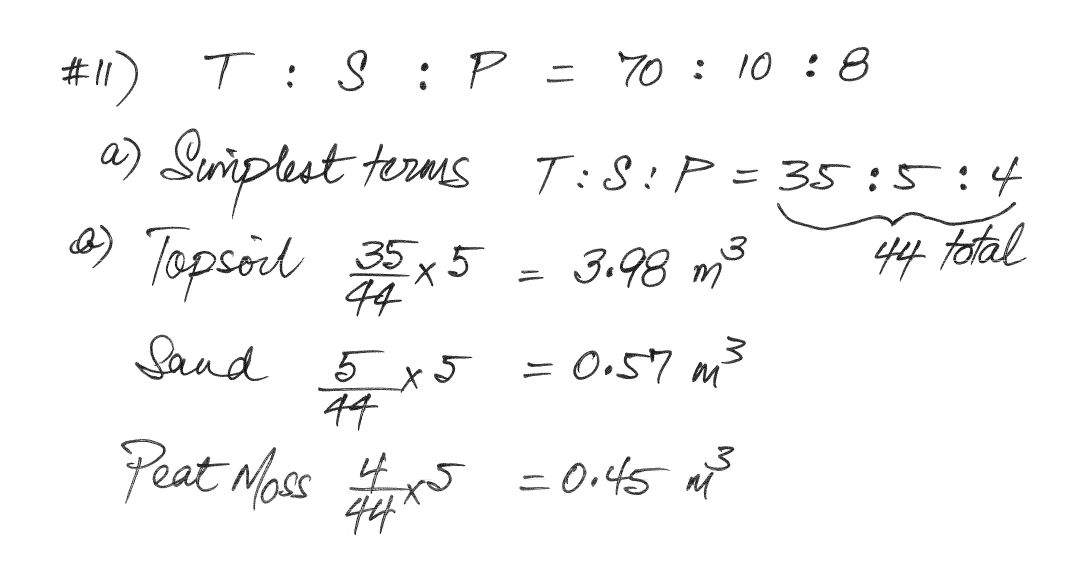 #11) T : S : P = 70 : 10 : 8
a) Simplest terms T : S : P = 35 : 5 : 4
44 total
a) Topsoil 35/44 x 5 = 3.98 m³
Sand 5/44 x 5 = 0.57 m³
Peat Moss 4/44 x 5 = 0.45 m³